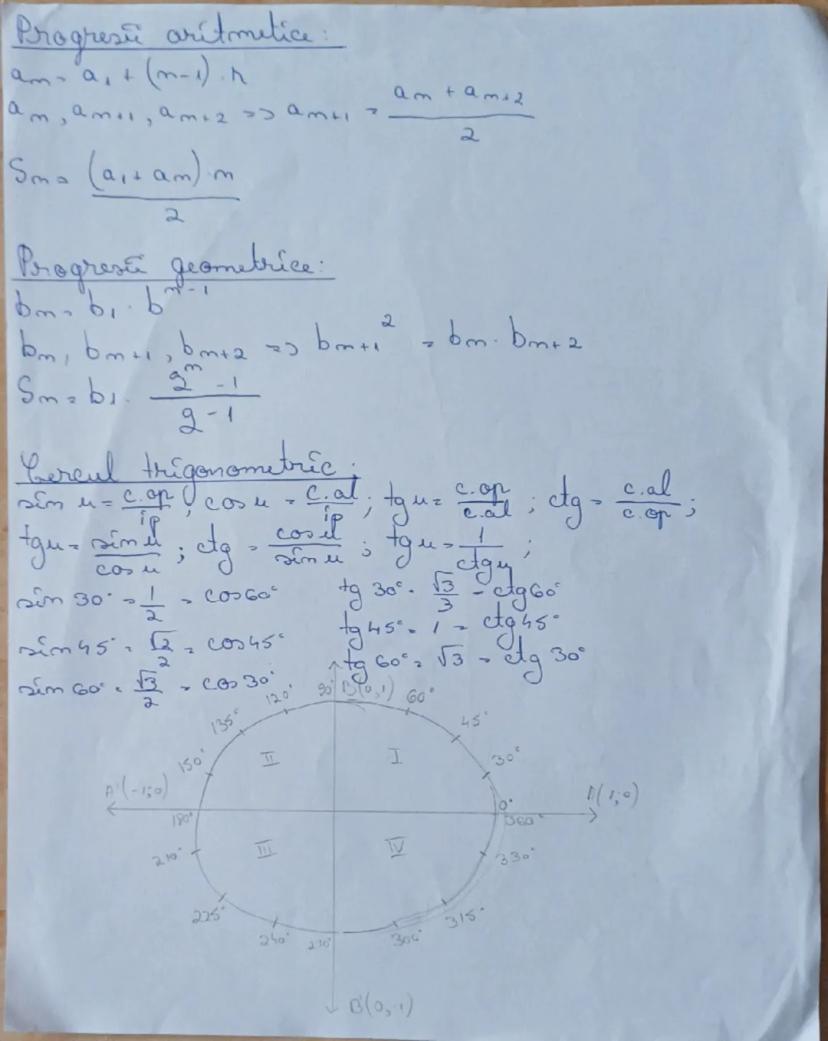 Progresii aritmetice:
an = a1 + (n-1) · r
an, an+1, an+2 => an+1 = (an + an+2) / 2
Sn = (a1 + an) · n / 2
Progresii geometrice:
bn = b1 · b^n-1
bn, bn+1, bn+2 => bn+1² = bn · bn+2
Sn = b1 · (q^n - 1) / (q - 1)
Cercul trigonometric:
sin u = c.op / ip; cos u = c.al / ip; tg u = c.op / c.al; ctg = c.al / c.op;
tg u = sin u / cos u; ctg = cos u / sin u; tg u = 1 / ctg u;
sin 30° = 1/2 = cos 60° tg 30° = √3/3 = ctg 60°
sin 45° = √2/2 = cos 45° tg 45° = 1 = ctg 45°
sin 60° = √3/2 = cos 30° tg 60° = √3 = ctg 30°
90° B(0,1)
120° 60°
135° 45°
150° II I 30°
A'(-1;0) 0° A(1;0)
180° 360°
210° III IV 330°
225° 315°
240° 270° 300°
B'(0,-1)